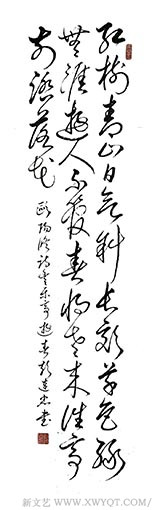 红树青山日欲斜长郊草色绿
無涯遊人不管春将老来往亭
前踏落花 欧阳修诗丰乐亭游春
新文艺 WWW.XWYQT.COM/